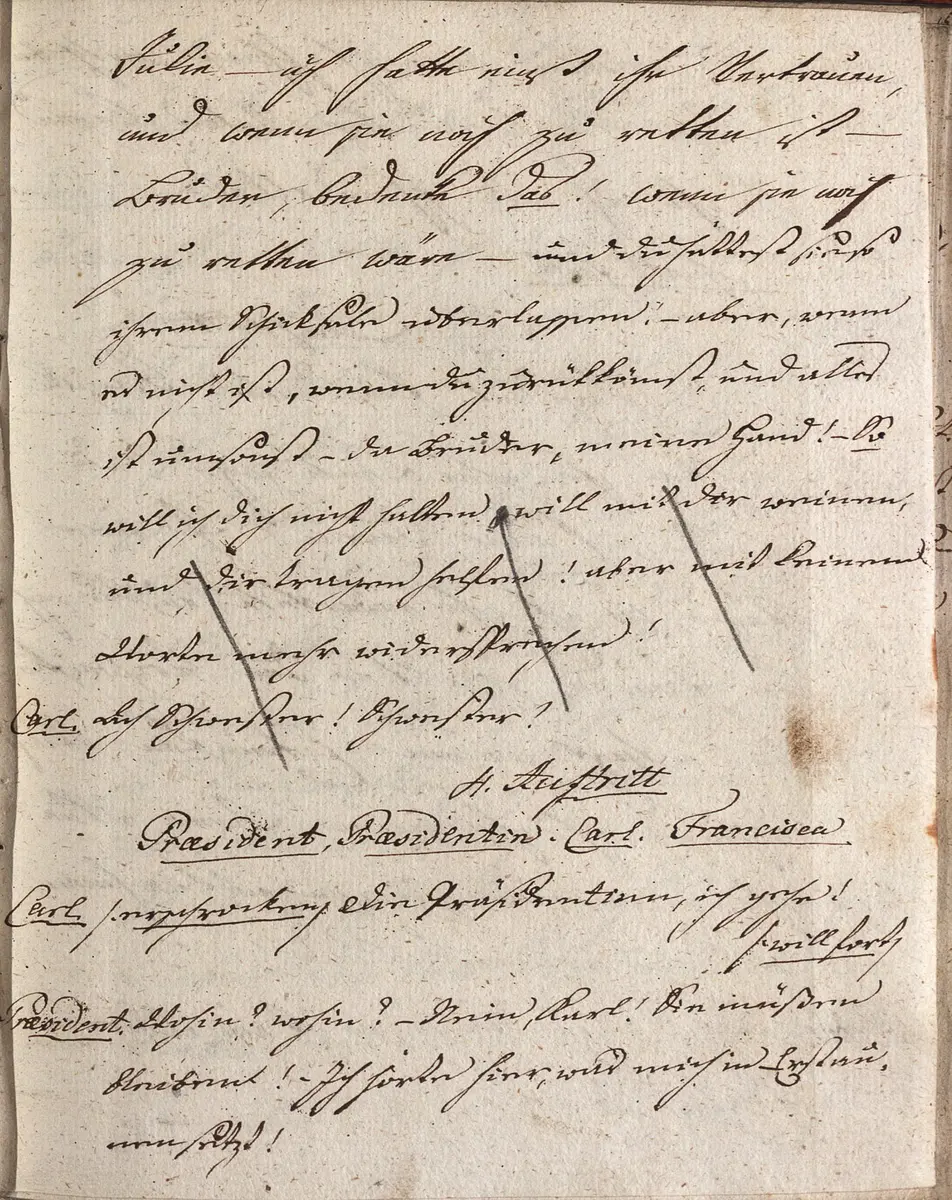 Julie – ich hatte einst ihr Vertrauen,
und wenn sie noch zu retten ist –
Bruder, bedenke das! wenn sie noch
zu retten wäre – und du hättest sie so
ihrem Schicksale überlassen! – aber, wenn
es nicht ist, wenn du zurükkömst, und alles
ist umsonst – da Bruder, meine Hand! – So
will ich dich nicht halten, will mit dir weinen,
und dir tragen helfen! aber mit keinem
Worte mehr widersprechen!
Carl. Ach Schwester! Schwester!
4. Auftritt
Præsident, Præsidentin. Carl. Francisca
Carl /: erschrocken :/ Die Präsidentinn, ich gehe!
/: will fort :/
Præsident. Wohin? wohin? – Nein, Karl! Sie müßen
bleiben! – Ich hörte hier, was mich in Erstau-
nen setzt!